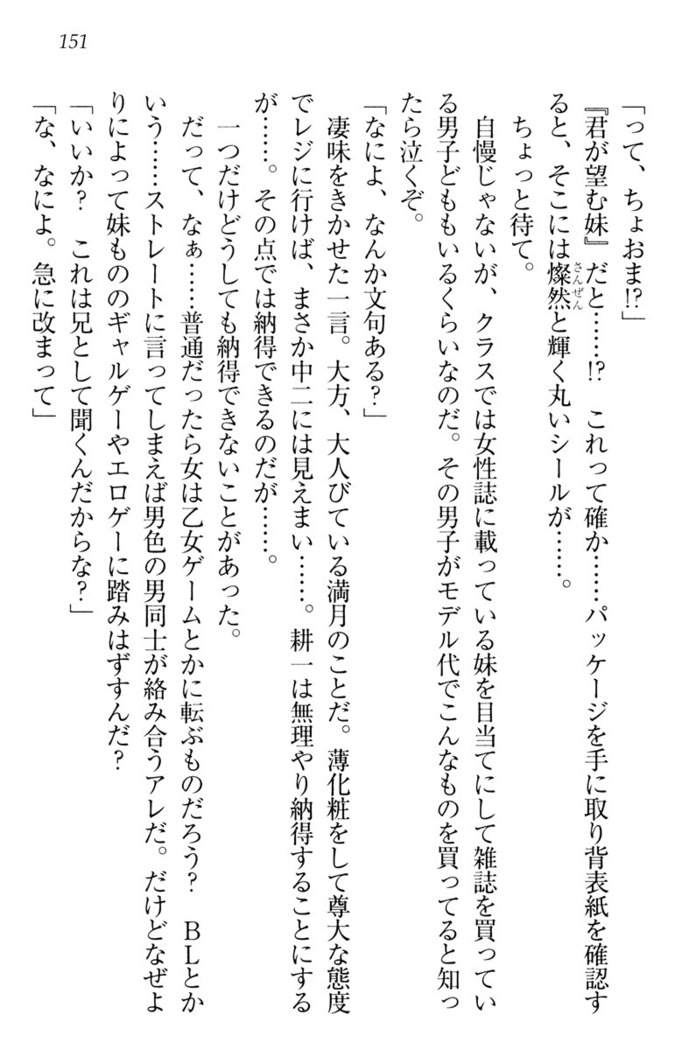 151
「って、ちょおま!?」
『君が望む妹』だと……!?　これって確か……パッケージを手に取り背表紙を確認す
ると、そこには燦然と輝く丸いシールが……。
ちょっと待て。
自慢じゃないが、クラスでは女性誌に載っている妹を目当てにして雑誌を買ってい
る男子どももいるくらいなのだ。その男子がモデル代でこんなものを買ってると知っ
たら泣くぞ。
「なによ、なんか文句ある？」
凄味をきかせた一言。大方、大人びている満月のことだ。薄化粧をして尊大な態度
でレジに行けば、まさか中二には見えまい……。耕一は無理やり納得することにする
が……。その点では納得できるのだが……。
一つだけどうしても納得できないことがあった。
だって、なぁ……普通だったら女は乙女ゲームとかに転ぶものだろう？　ＢＬとか
いう……ストレートに言ってしまえば男色の男同士が絡み合うアレだ。だけどなぜよ
りによって妹もののギャルゲーやエロゲーに踏みはずすんだ？
「いいか？　これは兄として聞くんだからな？」
「な、なによ。急に改まって」